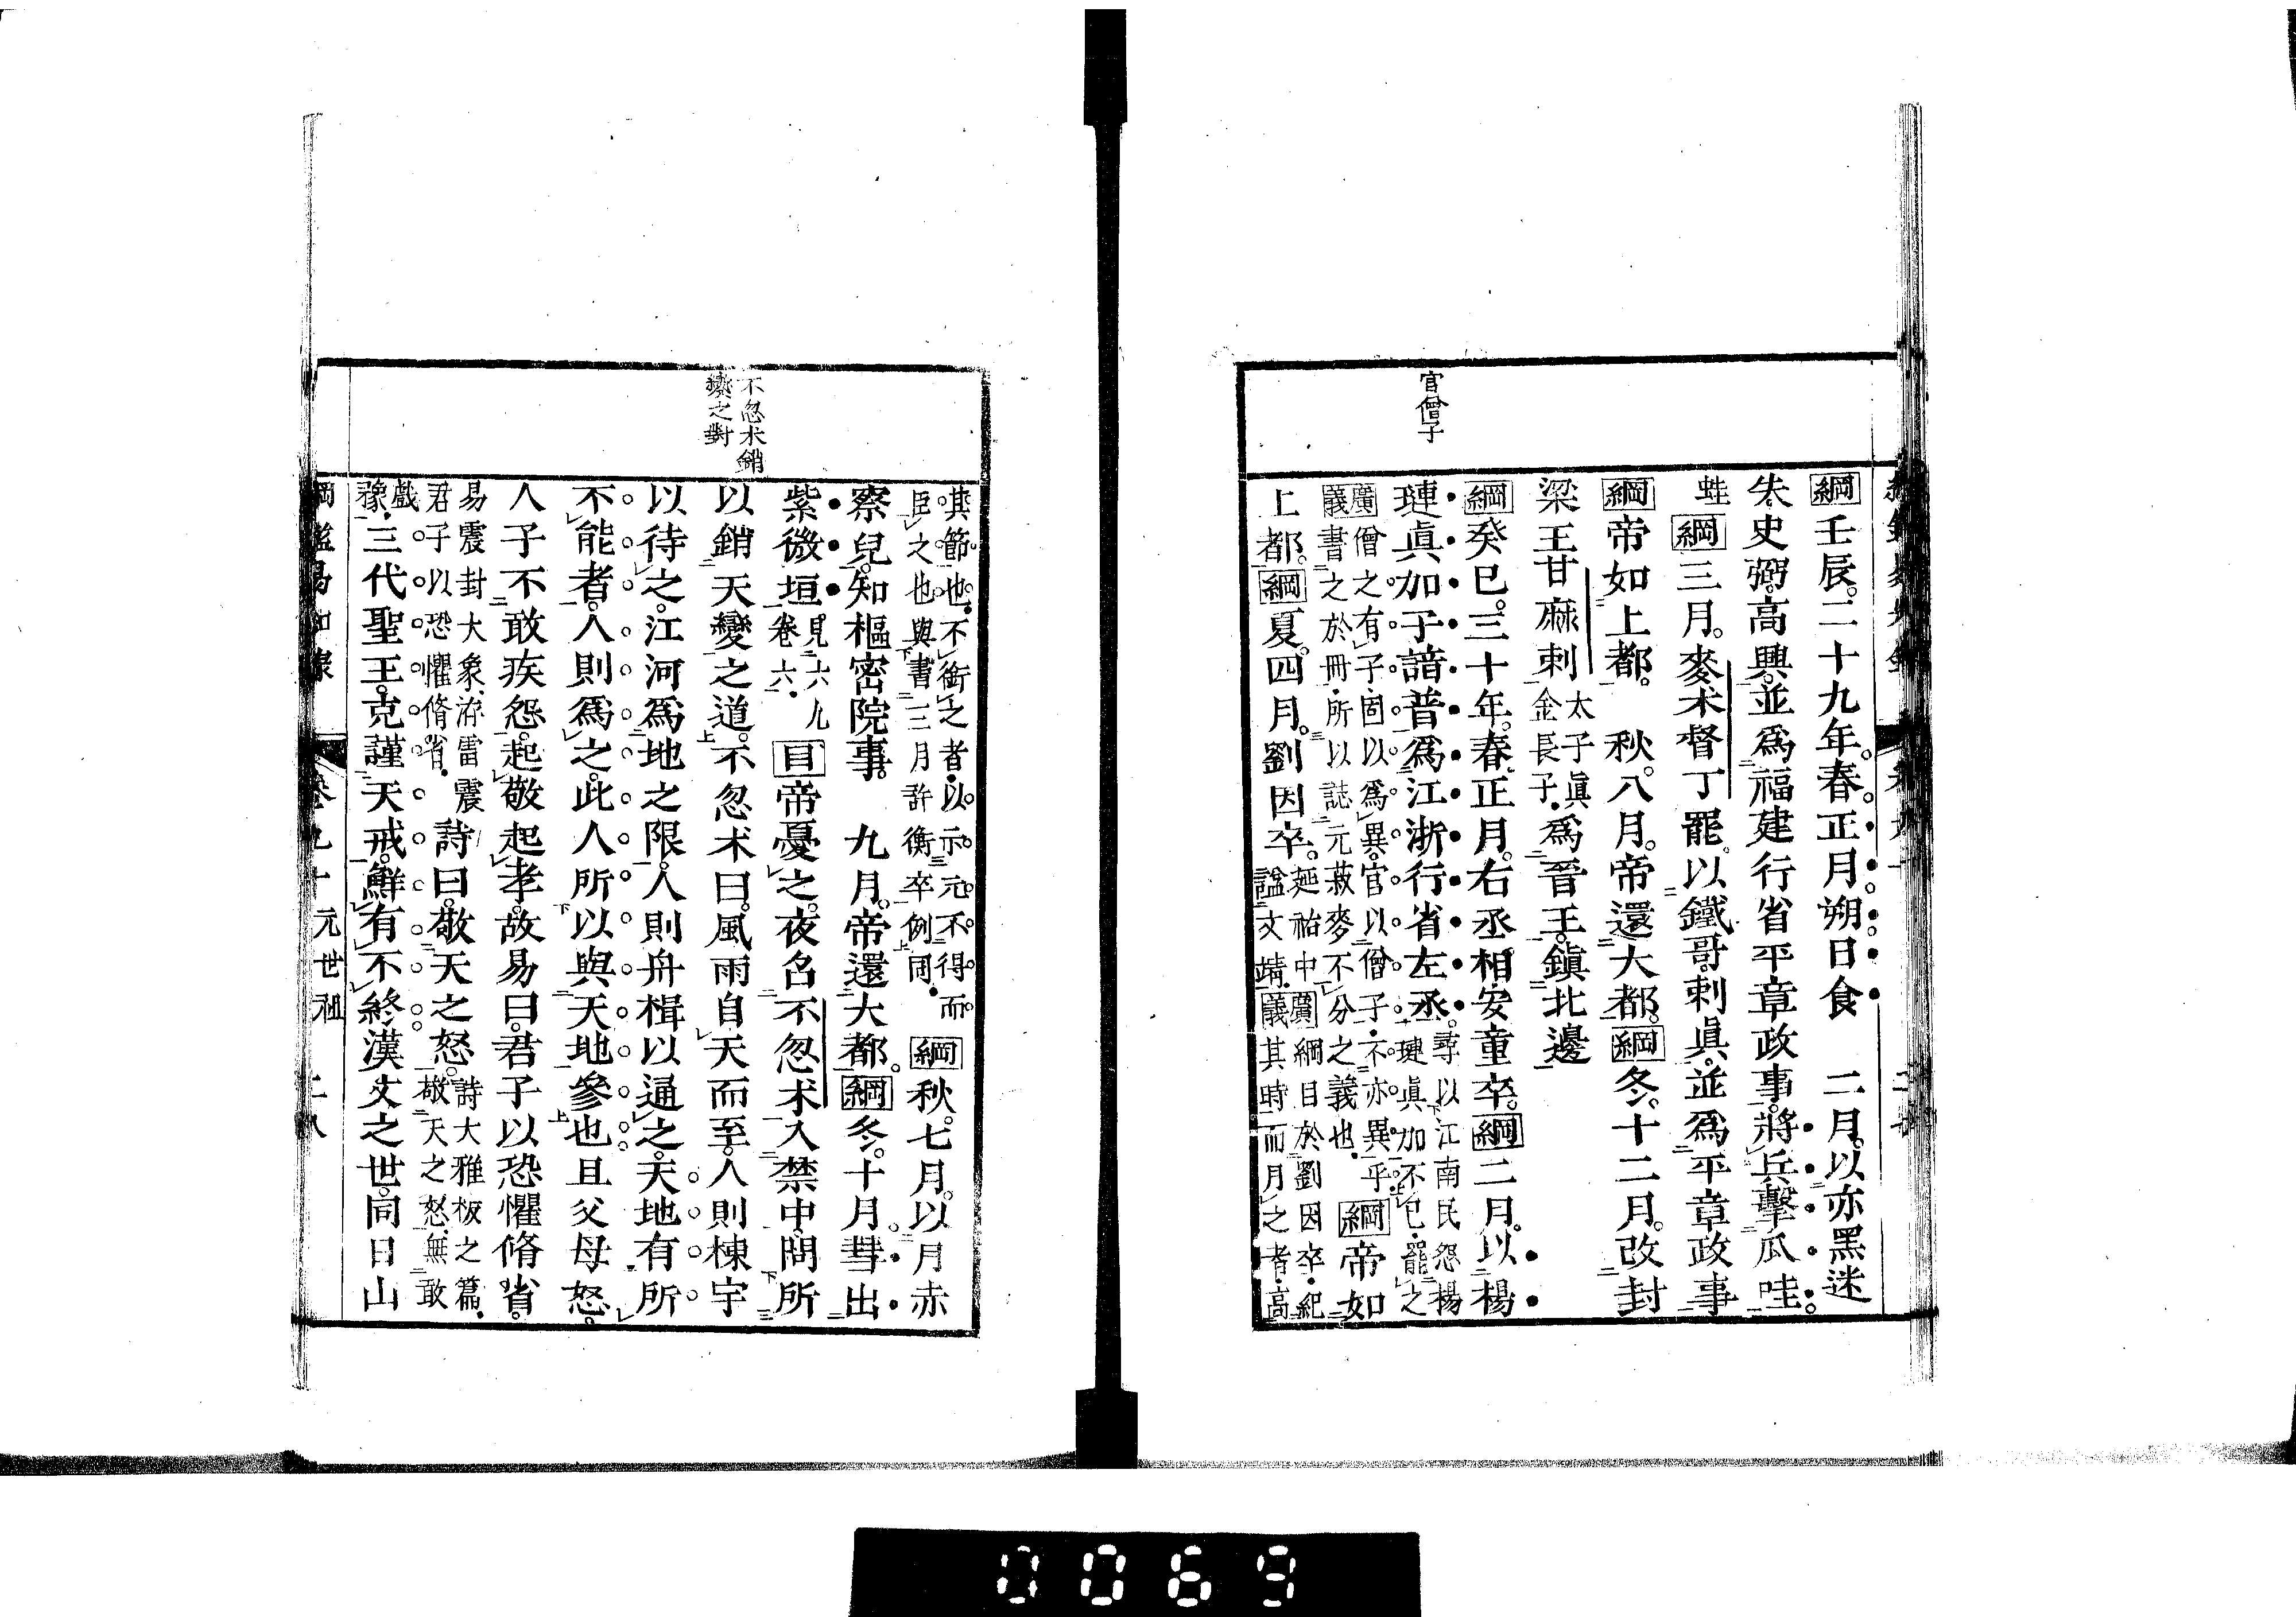 官僧子
綱壬辰。二十九年。春。正月朔日食　二月。以亦黑迷
失史弼。高興。並爲福建行省平章政事。將兵擊瓜哇。
蛙　綱三月。麥朮督丁罷。以鐵哥。剌眞。並爲平章政事
綱帝如上都。　秋。八月。帝還大都。綱冬。十二月。改封
梁王甘麻剌太子眞
金長子。爲晉王。鎭北邊
綱癸巳。三十年。春。正月。右丞相安童卒。綱二月。以楊
璉眞加子諳普爲江浙行省左丞。尋以江南民怨楊
璉眞加不已。罷之
廣僧之有子。固以爲異。官以僧子。不亦異乎。
義書之於冊。所以誌元菽麥不分之義也。綱帝如
上都。綱夏。四月。劉因卒。延祐中
諡文靖。廣綱目於劉因卒。紀
義其時而月之者。高
其節也。不銜之者。以示元不得而
臣之也與書三月許衡卒例同。綱秋。七月。以月赤
察兒。知樞密院事。　九月。帝還大都。綱冬。十月。彗出
紫微垣。見六九
卷六。目帝憂之。夜召不忽朮入禁中。問所
不忽朮銷
變之對
以銷天變之道。不忽朮曰。風雨自天而至。人則棟宇
以待之。江河爲地之限。人則舟楫以通之。天地有所
不能者。人則爲之。此人所以與天地參也且父母怒。
人子不敢疾怨。起敬起孝。故易曰。君子以恐懼脩省。
易震卦大象。洊雷震
君子以恐懼脩省。詩曰。敬天之怒。詩大雅板之篇。
敬天之怒。無敢
戲
豫。三代聖王。克謹天戒。鮮有不終漢文之世。同日山
綱鑑易知錄　卷九十　元世祖